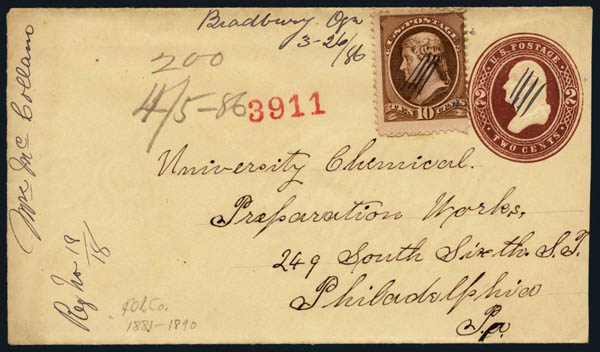 Bradbury. Ogn
3-26/86
200
4/5-86
3911
U.S. POSTAGE
TEN 10 CENTS
U.S. POSTAGE
2 2
TWO CENTS
University Chemical.
Preparation Works,
249 South Sixth. S.T.
Philadelphia
Pa.
Wm McCollam
Reg No 19
18
Co.
1881-1890